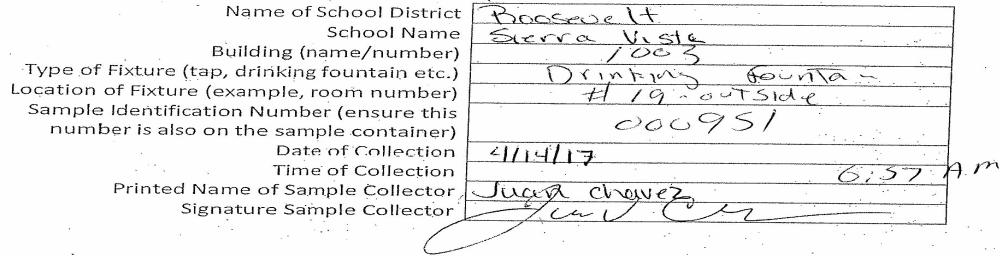 Name of School District Roosevelt
School Name Sierra Vista
Building (name/number) 1003
Type of Fixture (tap, drinking fountain etc.) Drinking Fountain
Location of Fixture (example, room number) # 19 - outside
Sample Identification Number (ensure this
number is also on the sample container) 000951
Date of Collection 4/14/17
Time of Collection 6:57 A.M
Printed Name of Sample Collector Juan Chavez
Signature Sample Collector